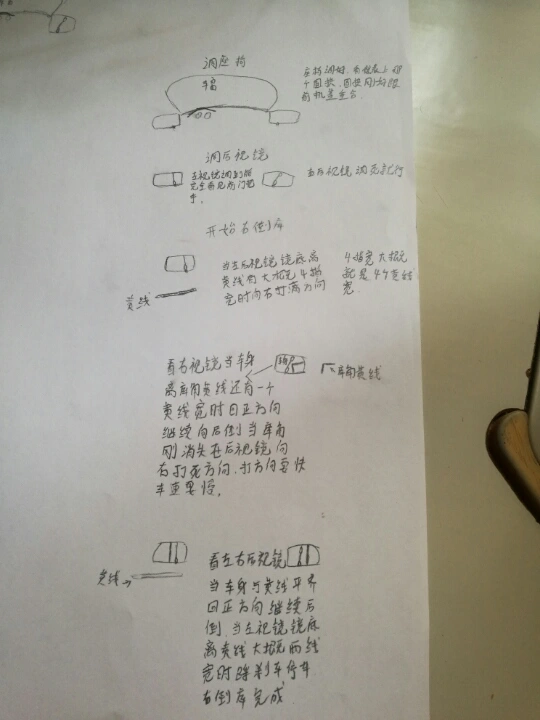 调座椅
福
座椅调好，
个圆弧，圆弧刚好跟
前机盖重合.
调后视镜
左视镜调到能
完全看见前门把
手.
右后视镜调亮就行
开始右倒库
黄线
当左后视镜镜底离
黄线有大概4指
宽时向右打满方向
4指宽大概
就是4个黄线
宽.
看右视镜当车身
离库角黄线还有一个
黄线宽时回正方向
继续向后倒当库角
刚消失在后视镜向
右打死方向.打方向要快
车速要慢.
库角黄线
黄线
看左右后视镜
当车身与黄线平齐
回正方向继续后
倒.当左视镜镜底
离黄线大概两线
宽时踩刹车停车
右倒库完成